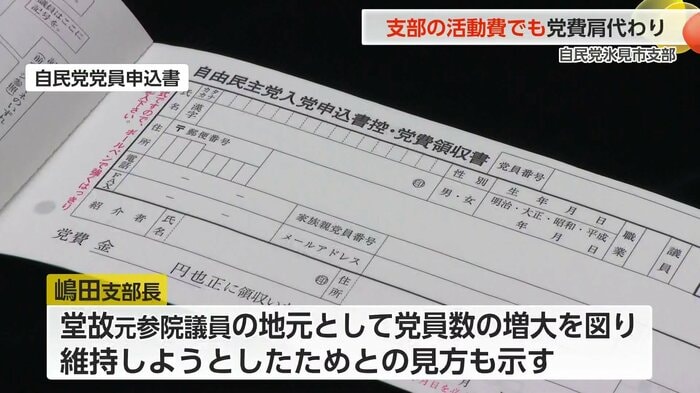 支部の活動費でも党費肩代わり
自民党氷見市支部
自民党党員申込書
自由民主党入党申込書控・党費領収書
氏名
漢字
〒郵便番号
住所
電話
FAX
ボールペンで強くはっきり
印
性別
男・女
党員番号
生年月日
明治・大正・昭和・平成
年 月 日
職業
議員
紹介者
氏名
家族親党員番号
メールアドレス
党費 金
円也正に領収い
印
住所
嶋田支部長
堂故元参院議員の地元として党員数の増大を図り
維持しようとしたためとの見方も示す